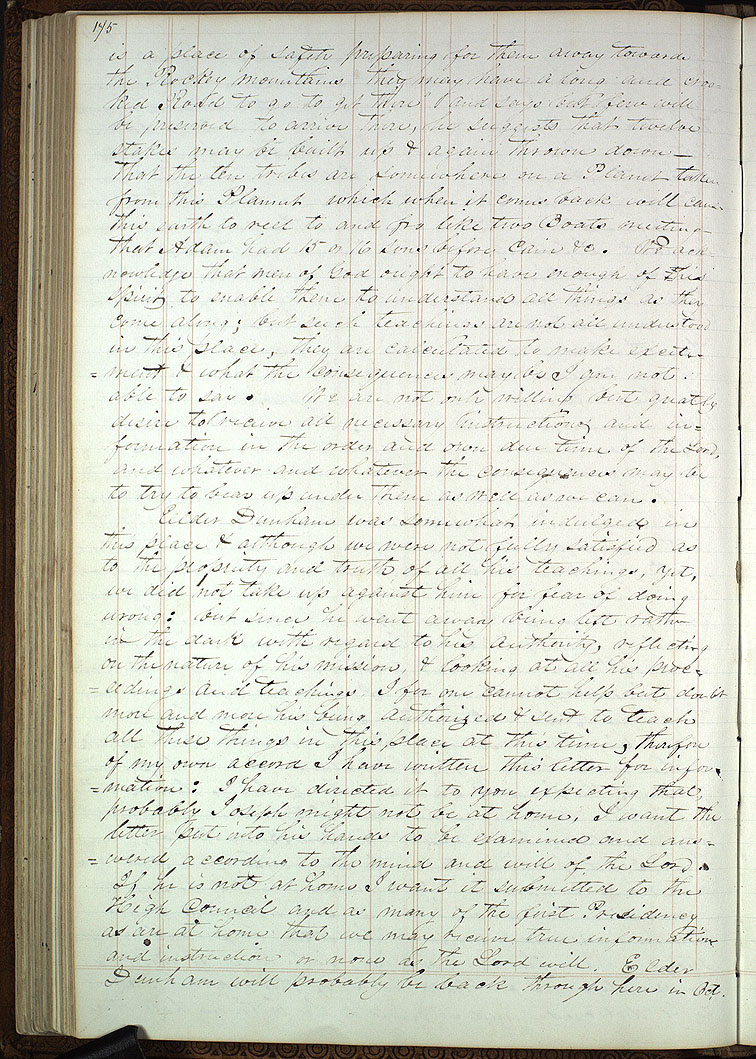 175
is a place of safety preparing for them away towards
the Rocky mountains they may have a long and croo-
ked Road to go to get there & and says but few will
be preserved to arrive there, he suggests that twelve
stakes may be built up & again thrown down—
That the ten tribes are somewhere on a Planet taken
from this Plannet which when it comes back will cause
this earth to reel to and fro like two Boats meeting—
That Adam had 15 or 16 sons before Cain &c. We ack-
nowledge that men of God ought to have enough of His
Spirit to enable them to understand all things as they
come along; but such teachings are not all understood
in this place, they are calculated to make excite-
=ment & what the consequences may be I am not
able to say. We are not only willing but greatly
desire to receive all necessary instructions and in=
formation in the order and own due time of the Lord,
and whatever and whatever the consequences may be
to try to bear up under them as well as we can.
Elder Dunham was somewhat indulged in
this place & although we were not fully satisfied as
to the propriety and truth of all his teachings, yet,
we did not take up against him for fear of doing
wrong: but since he went away being left rather
in the dark with regard to his authority, reflecting
on the nature of his mission, & looking at all his proc=
=eedings and teachings I for one cannot help but doubt
more and more his being authorized & sent to teach
all these things in this place at this time, therefore
of my own accord I have written this letter for infor=
=mation: I have directed it to you expecting that
probably Joseph might not be at home, I want the
letter put into his hands to be examined and ans=
=wered according to the mind and will of the Lord.
If he is not at home I want it submitted to the
High Council and as many of the first Presidency
as are at home that we may receive true information
and instruction or none as the Lord will. Elder
Dunham will probably be back through here in Oct.